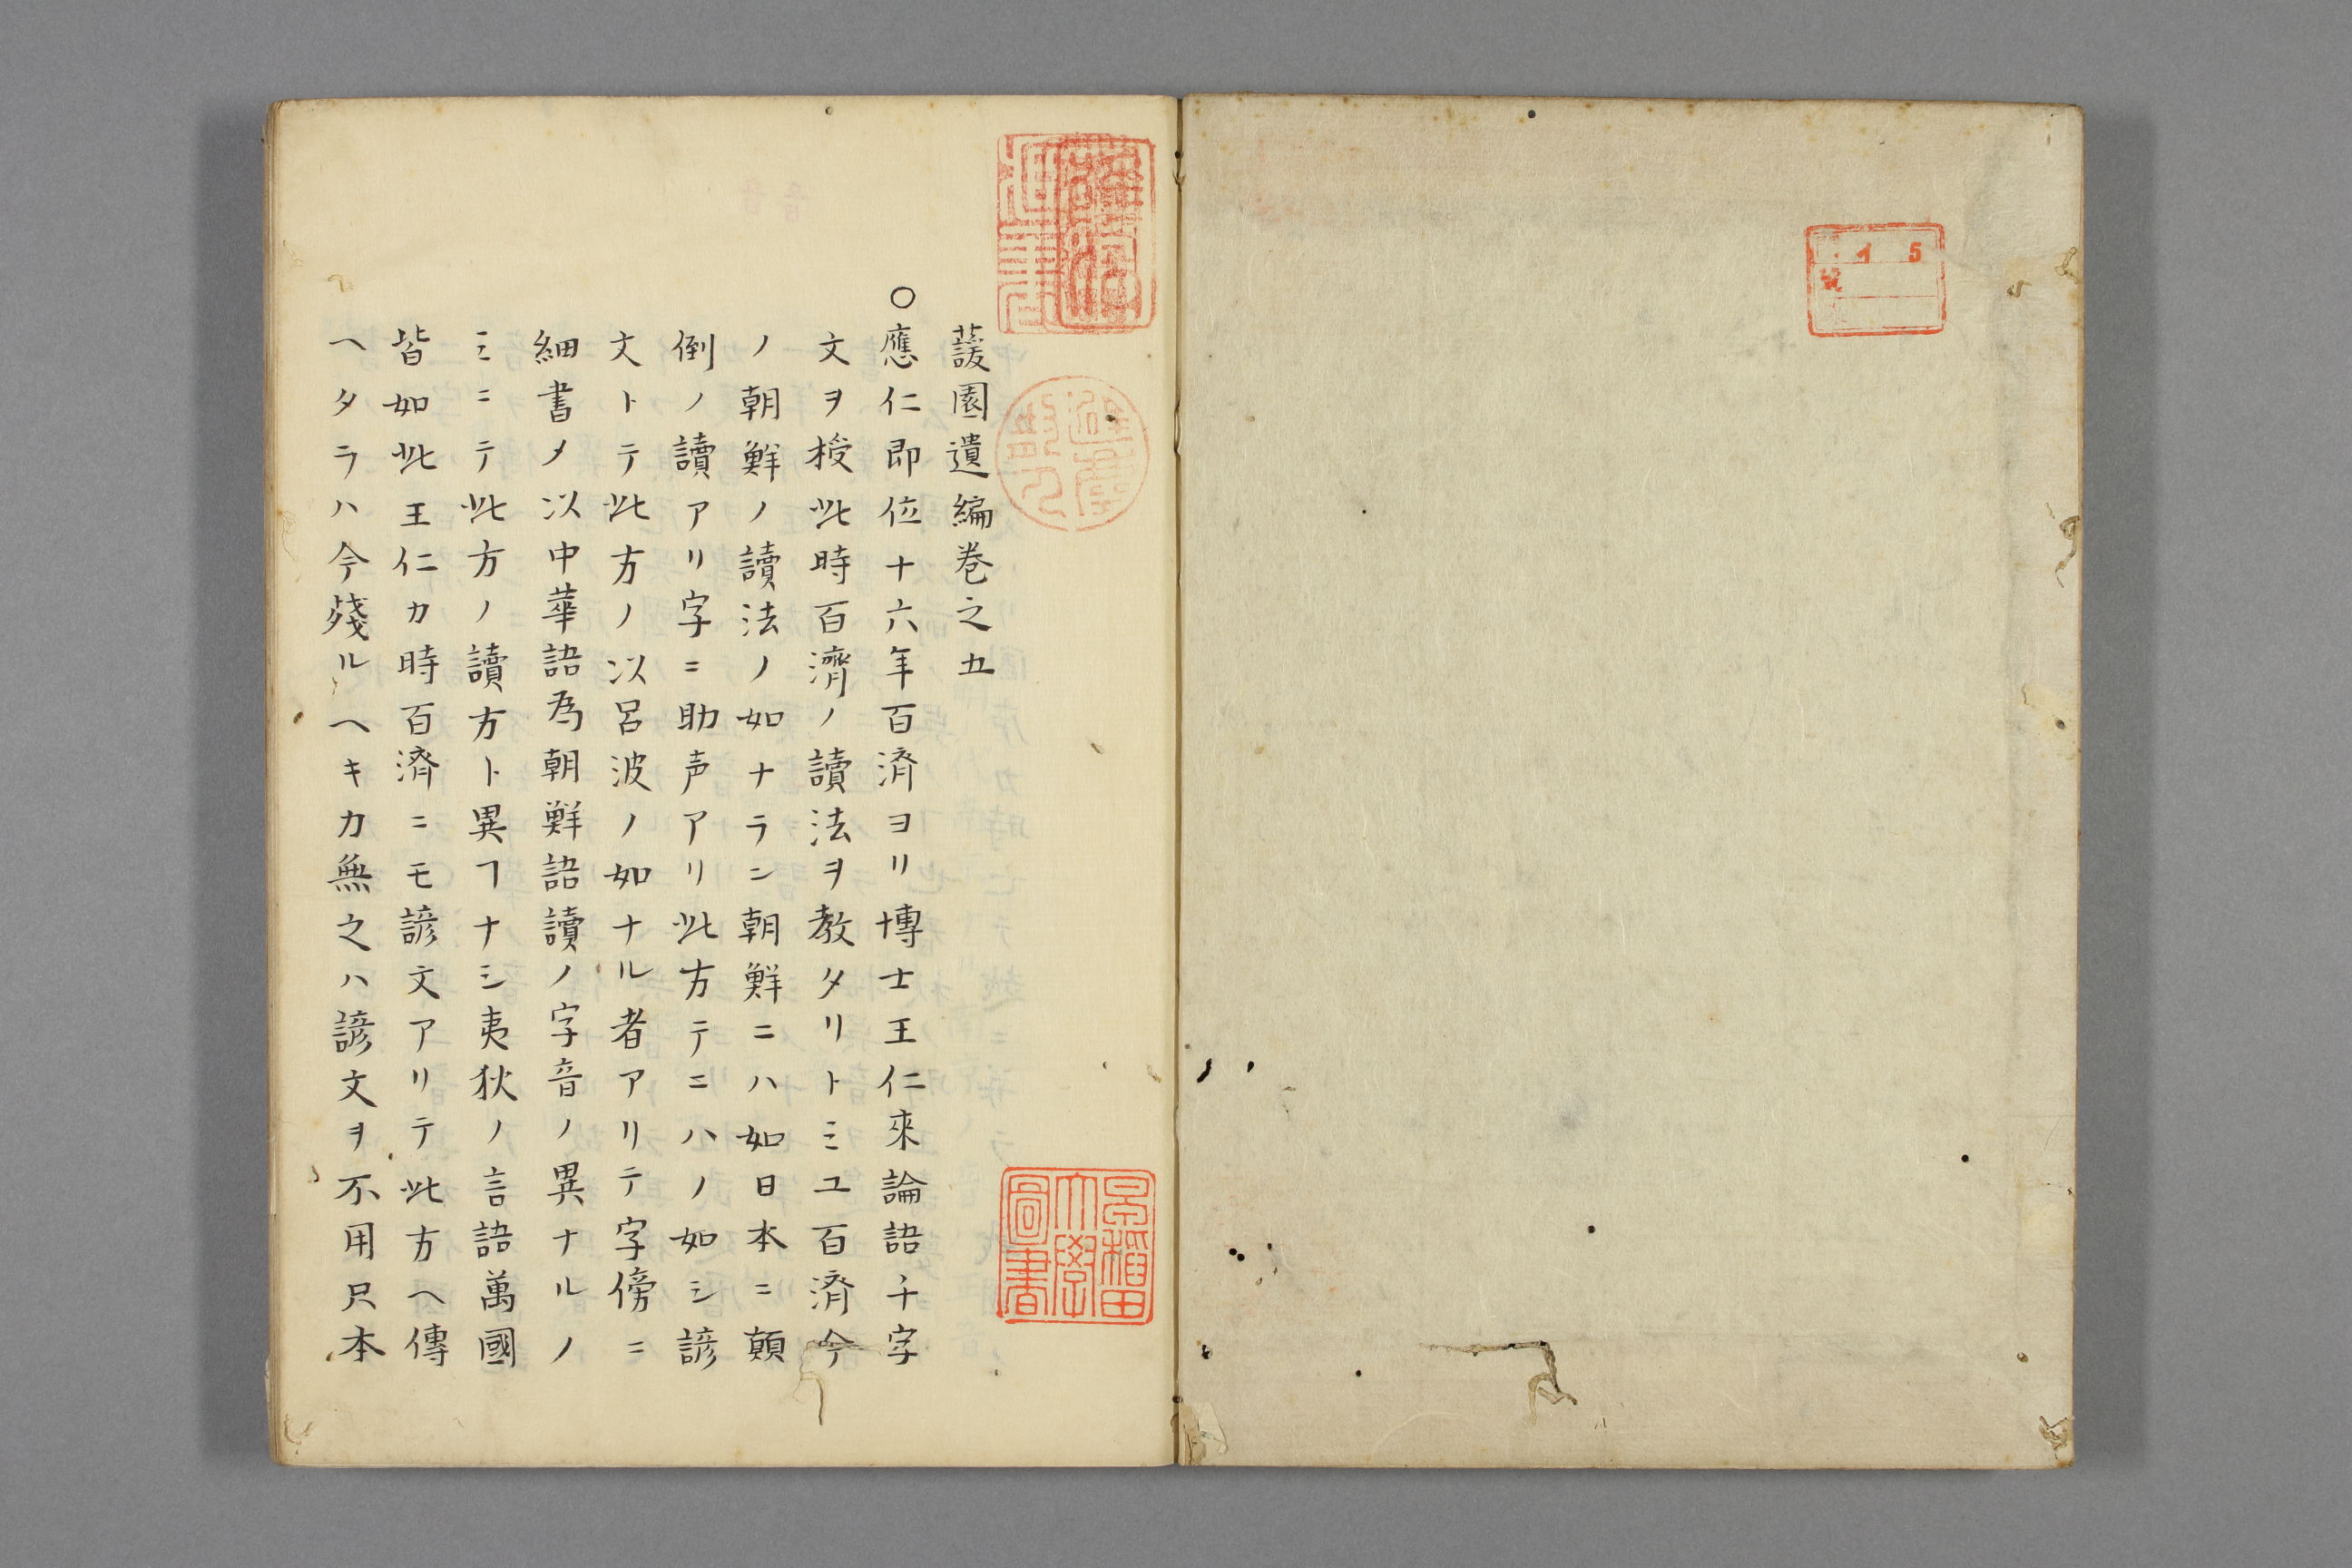 蘐園遺編巻之五
○應仁即位十六年百濟ヨリ博士王仁來論語千字
文ヲ授此時百濟ノ讀法ヲ教タリトミユ百濟今
ノ朝鮮ノ讀法ノ如ナラン朝鮮ニハ如日本ニ顛
倒ノ讀アリ字ニ助声アリ此方テニハノ如シ諺
文トテ此方ノ以呂波ノ如ナル者アリテ字傍ニ
細書メ以中華語為朝鮮語讀ノ字音ノ異ナルノ
ミニテ此方ノ讀方ト異ヿナシ夷狄ノ言語萬國
皆如此王仁カ時百濟ニモ諺文アリテ此方ヘ傳
ヘタラハ今殘ルヘキカ無之ハ諺文ヲ不用只本
早稲田
大學
圖書
1 5